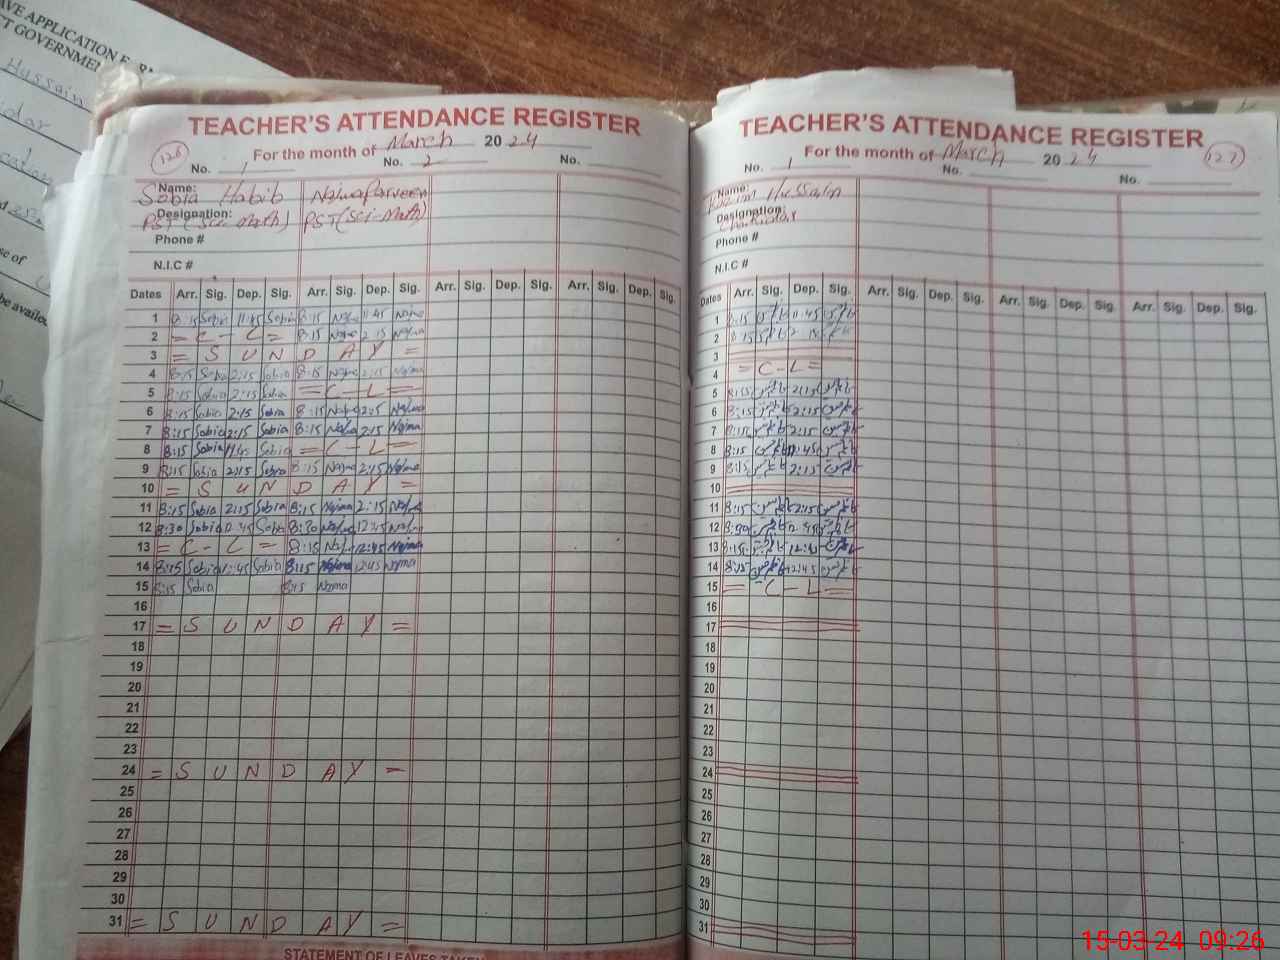 AVE APPLICATION
CT GOVERNMEN
Hussain
dar
se of
be availed
TEACHER'S ATTENDANCE REGISTER
126
For the month of March 2024
No. 1 No. 2 No.
Name: Sobia Habib Najma Parveen
Designation: PST (Sci-Math) PST (Sci-Math)
Phone #
N.I.C #
Dates Arr. Sig. Dep. Sig. Arr. Sig. Dep. Sig. Arr. Sig. Dep. Sig. Arr. Sig. Dep. Sig.
1 8:15 Sobia 11:45 Sobia 8:15 Najma 11:45 Najma
2 = C - L = 8:15 Najma 2:15 Najma
3 = S U N D A Y =
4 8:15 Sobia 2:15 Sobia 8:15 Najma 2:15 Najma
5 8:15 Sobia 2:15 Sobia = C - L =
6 8:15 Sobia 2:15 Sobia 8:15 Najma 2:15 Najma
7 8:15 Sobia 2:15 Sobia 8:15 Najma 2:15 Najma
8 8:15 Sobia 11:45 Sobia = C - L =
9 8:15 Sobia 2:15 Sobia 8:15 Najma 2:15 Najma
10 = S U N D A Y =
11 8:15 Sobia 2:15 Sobia 8:15 Najma 2:15 Najma
12 8:30 Sobia 12:45 Sobia 8:30 Najma 12:45 Najma
13 = C - L = 8:15 Najma 12:45 Najma
14 8:15 Sobia 12:45 Sobia 8:15 Najma 12:45 Najma
15 8:15 Sobia 8:15 Najma
16
17 = S U N D A Y =
18
19
20
21
22
23
24 = S U N D A Y =
25
26
27
28
29
30
31 = S U N D A Y =
STATEMENT OF LEAVES TAKEN
TEACHER'S ATTENDANCE REGISTER
For the month of March 2024
127
No. 1 No. No.
Name: Hussain
Designation: Chowkidar
Phone #
N.I.C #
Dates Arr. Sig. Dep. Sig. Arr. Sig. Dep. Sig. Arr. Sig. Dep. Sig. Arr. Sig. Dep. Sig.
1 8:15 11:45
2 8:15 2:15
3
4 = C - L =
5 8:15 2:15
6 8:15 2:15
7 8:15 2:15
8 8:15 11:45
9 8:15 2:15
10
11 8:15 2:15
12 8:30 12:45
13 8:15 12:45
14 8:15 12:45
15 = C - L =
16
17
18
19
20
21
22
23
24
25
26
27
28
29
30
31
15-03-24 09:26